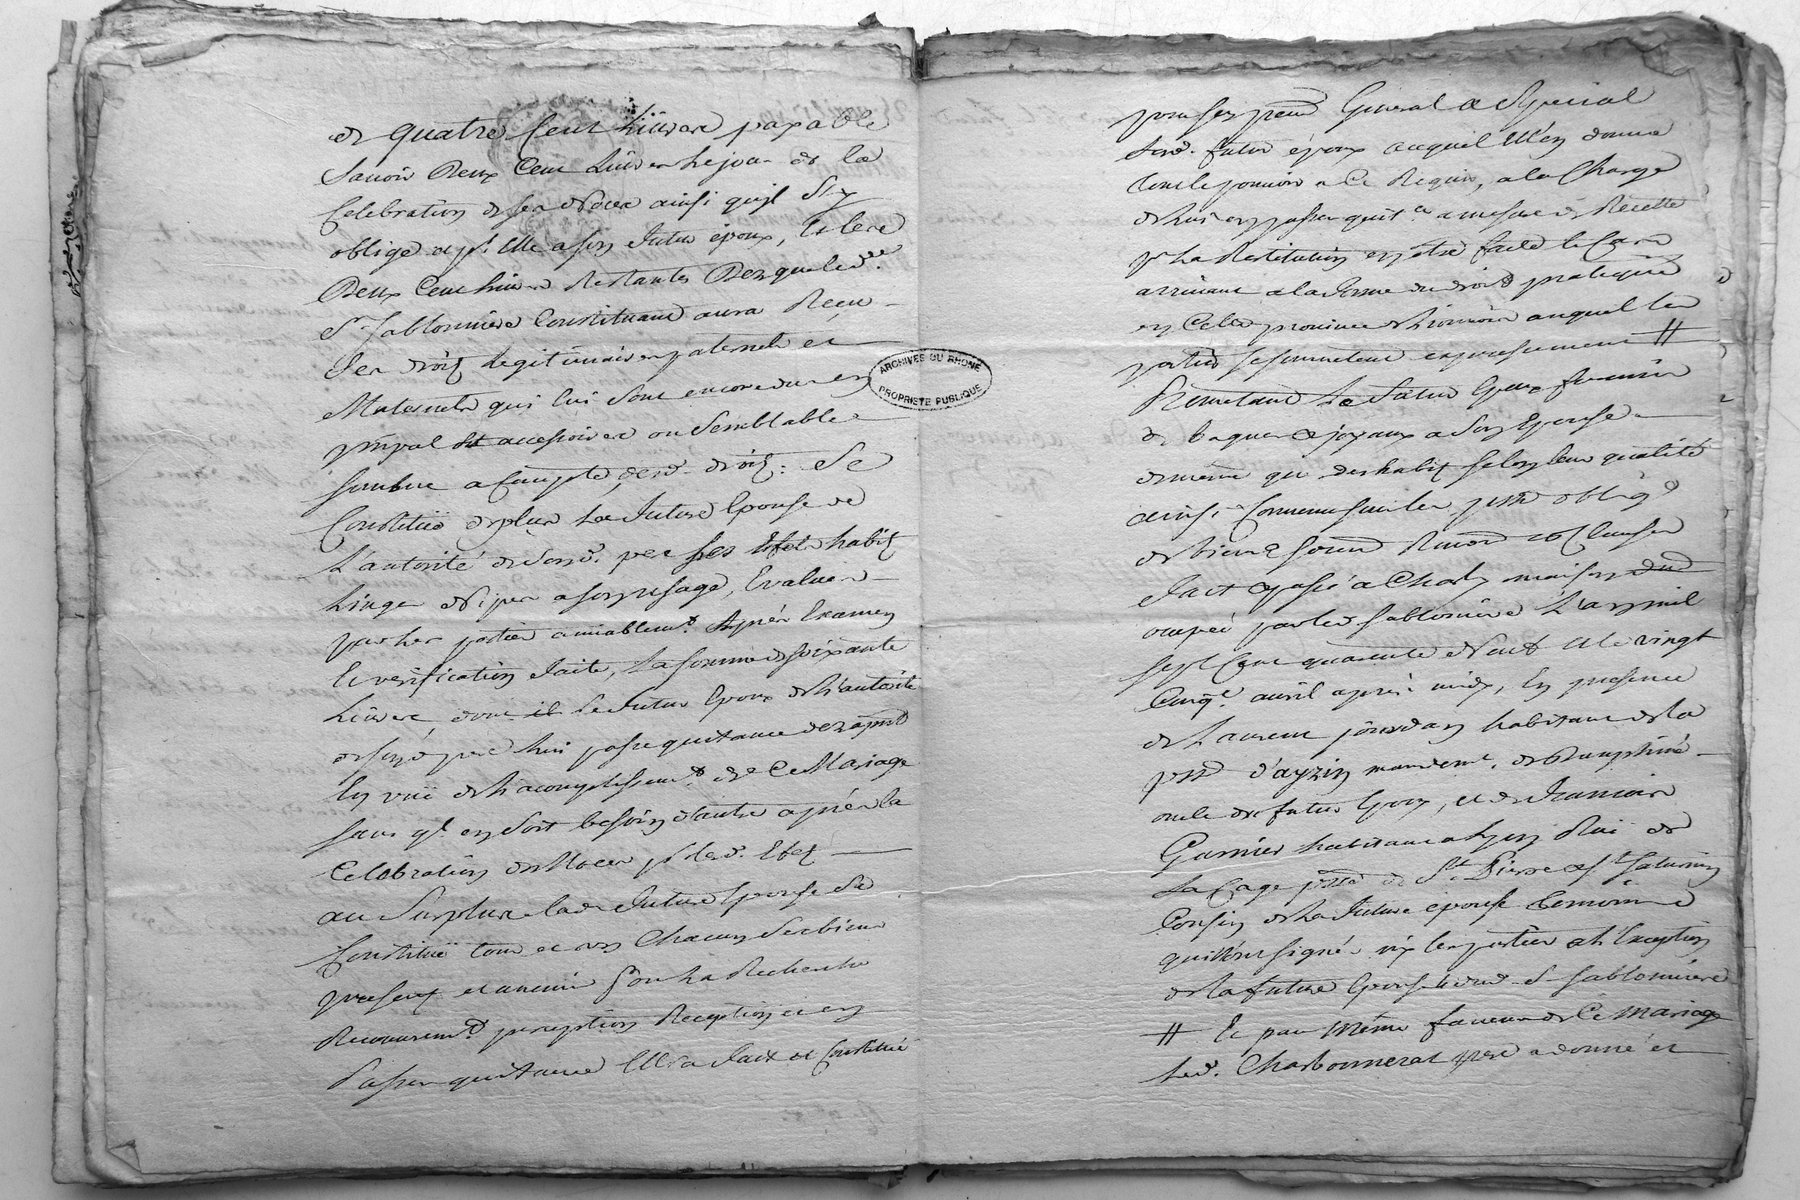 de quatre Cent Livres payable
Savoir Deux Cent Livres le jour de la
Celebration de ses Nôces ainsi qu'il s'y
oblige et pr. Elle a son futur époux, Et les
Deux Cent livres Restantes Des que led.
Sr. Sablonniere Constituant aura Reçu
Ses droits Legitimaires paternels et
Maternels qui lui sont encore dus en
pnpal et accessoires ou Semblable
somme a Compte desd. droits. Se
Constitüe de plus La future Epouse de
L'autorité de sond. pere ses habits
Linges Nipes a son usage, Evalués
par Les parties amiablemt. Après Examen
Et vérification faite, La somme de soixante
Livres dont il Le futur Epoux de L'autorité
de sond pere Lui passe quittance des apnt
En vüe de L'acomplissemt. de Ce Mariage
sans ql. en soit besoin d'autre après la
Celebration de Noces pr. led. Effets
au Surplus lad. future Epouse Se
Constitüe tous et uns Chacuns Ses biens
presents et avenir pour La Recherche
Recouvremt. perception Reception et en
Passer quittance Elle a fait et Constitué
pour son preur General et Special
Sond. futur époux auquel Elle en donne
tout le pouvoir a Ce Requis, a la Charge
de Lui en passer quitce a mesure de Recette
pr La Restitution en être faite le Cas
arrivant a la forme du droit pratiqué
en Cette province de Lionnois auquel les
parties se soumettent expressement #
Promettant Le futur Epoux fournir
de bagues et joyaux a son Epouse
de même que des habits selon leur qualité
ainsi Convenu sur les pnes oblig
de biens soumd Renond et Clauses
fait et passé a Charly maison
occupée par led Sablonniere L'an mil
sept Cent quarante et le vingt
Cinqe. avril après midy, En presence
de Laurent jourdan habitant de la
pss d'ayzin mandemt. de Dauphiné
oncle du futur Epoux, et de francois
Garnier habitant a Lyon Rüe de
La Cage psse de St. Pierre et St. Saturnin
Cousin de La future épouse temoins
qui ont signé avec les parties a L'Exception
de la future Epouse et dud. Sr. Sablonniere
# Et par Même faveur de Ce Mariage
Led. Charbonnerat pere a donné et
ARCHIVES DU RHONE
PROPRIETE PUBLIQUE